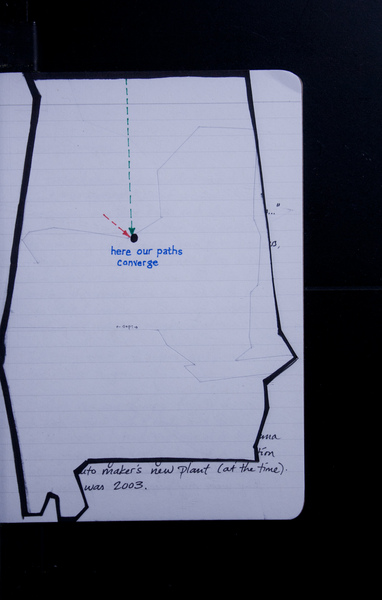 ..."
here our paths
converge
auto maker's new plant (at the time).
was 2003.